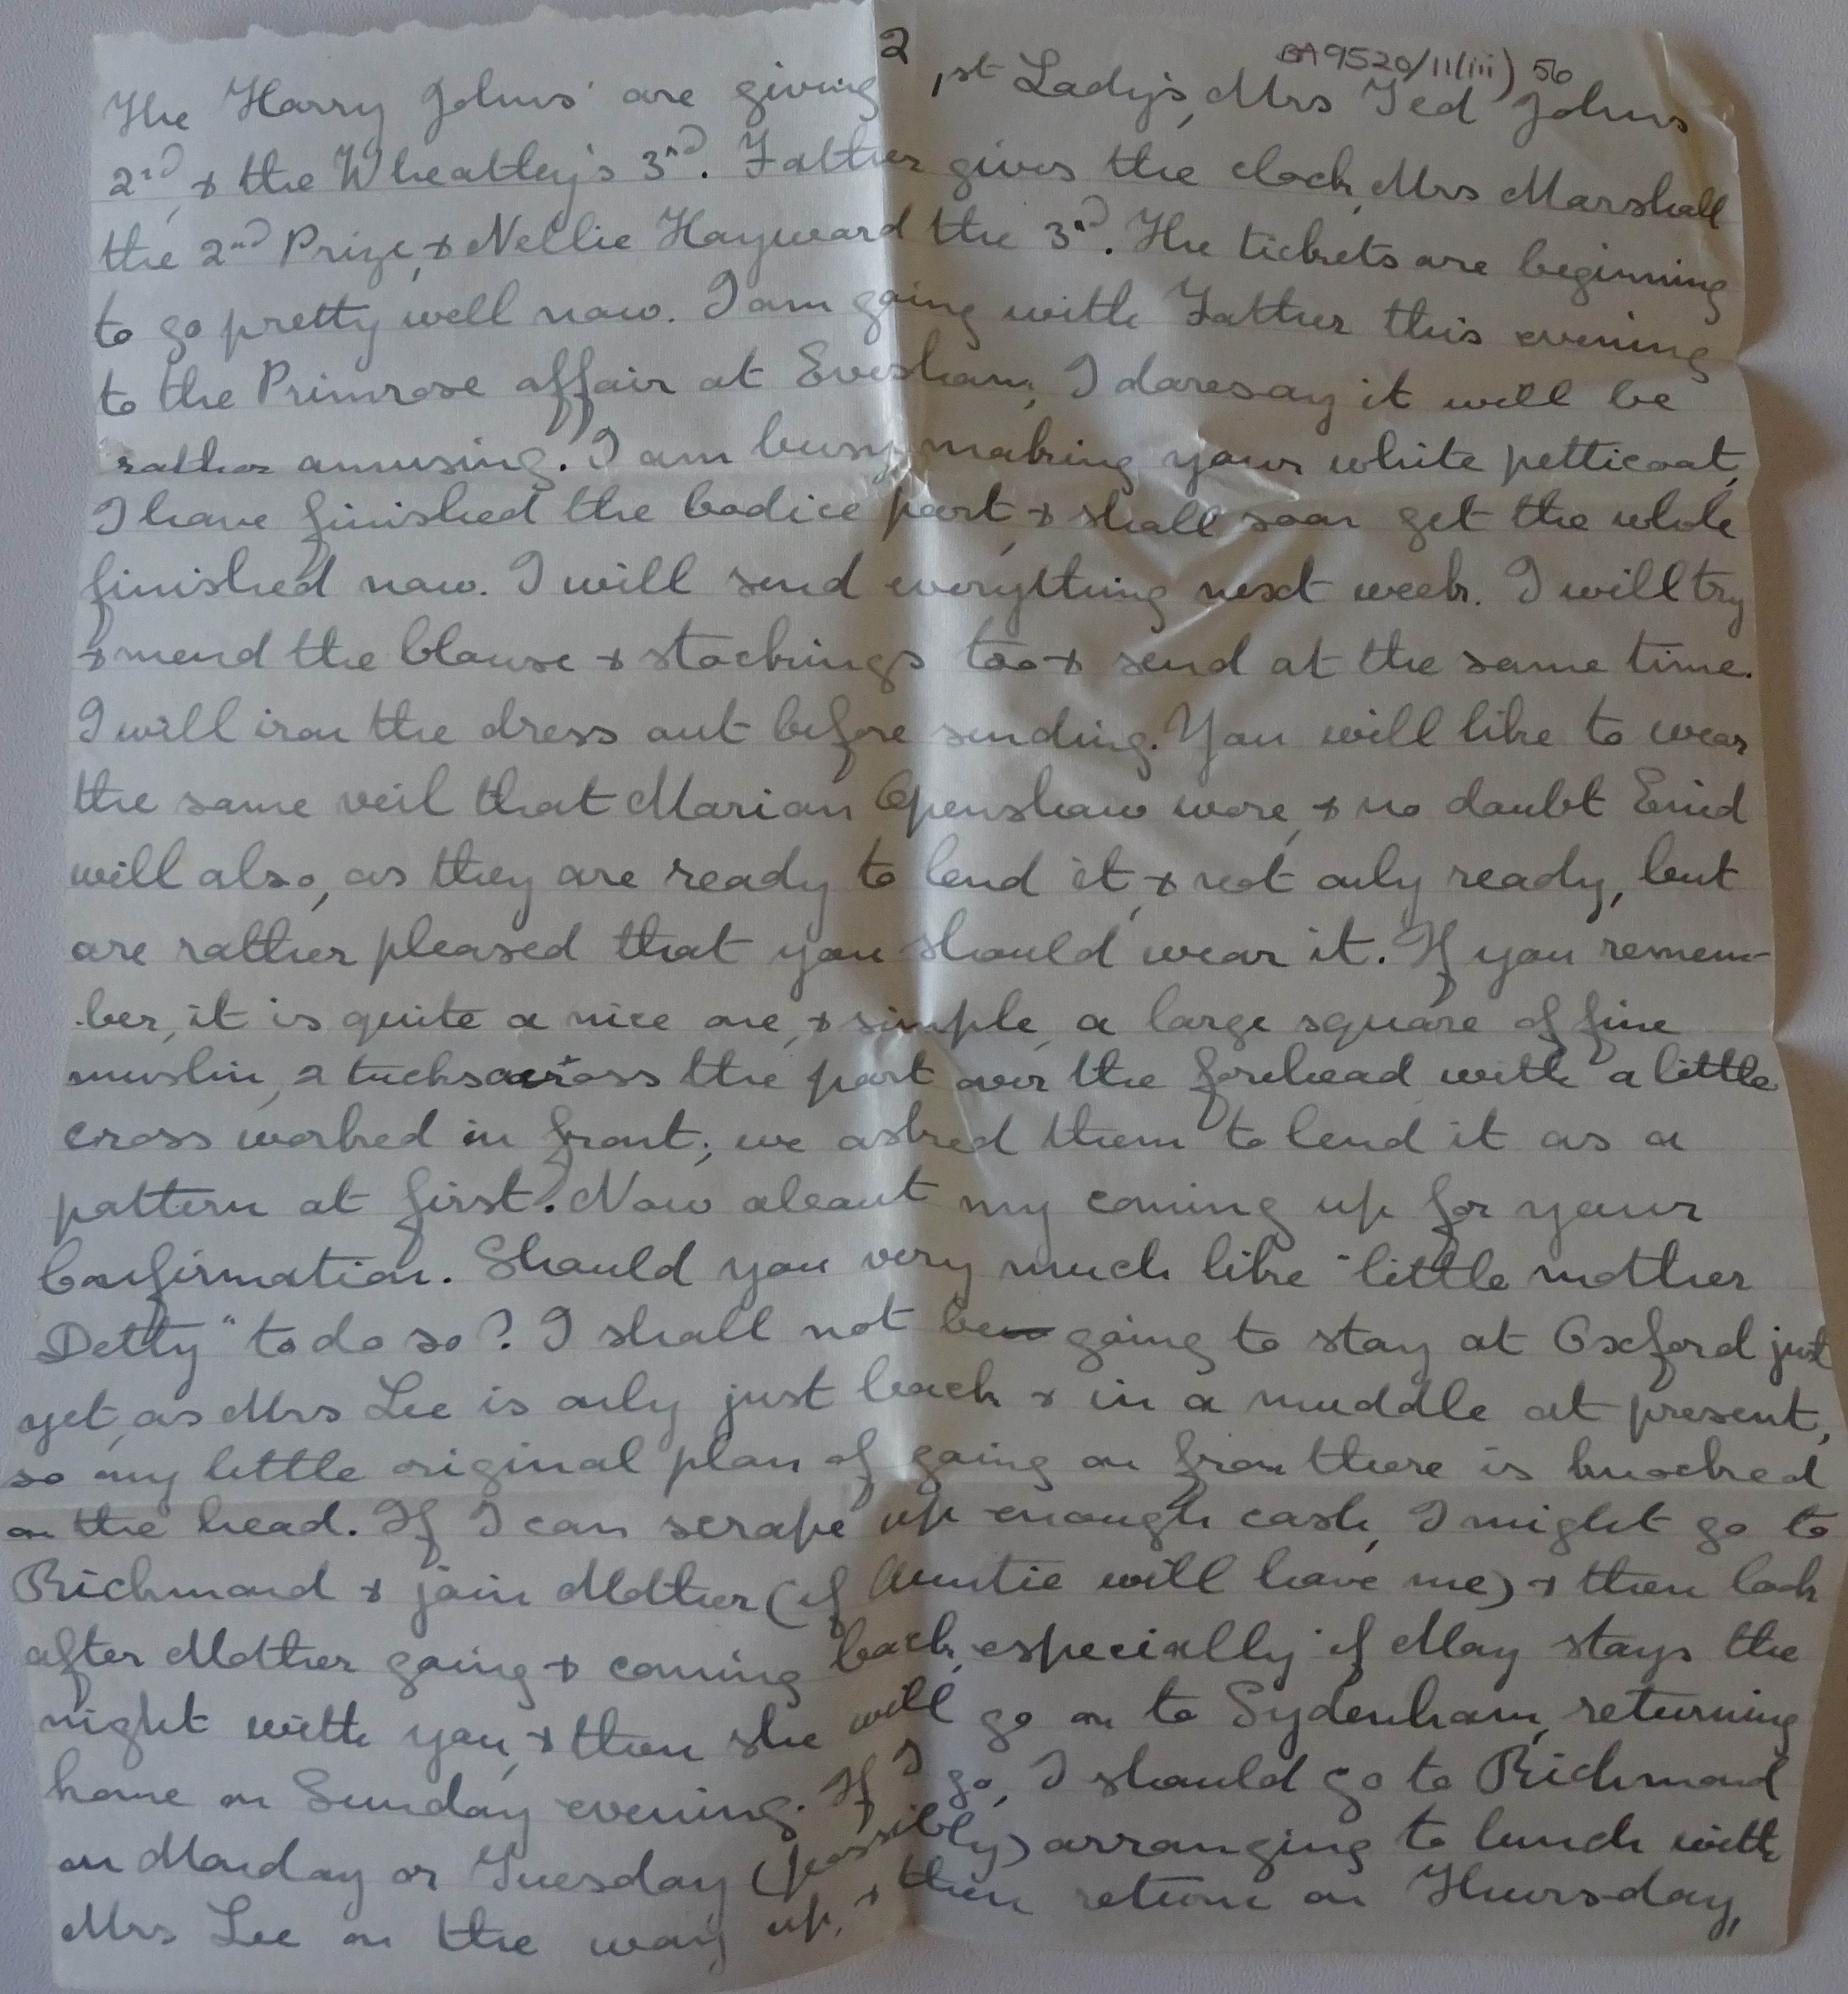 2
BA9520/11(iii) 56
The Harry Johns' are giving 1st Lady's, Mrs Ted Johns
2nd, & the Wheatley's 3rd. Father gives the clock, Mrs Marshall
the 2nd Prize, & Nellie Hayward the 3rd. The tickets are beginning
to go pretty well now. I am going with Father this evening
to the Primrose affair at Evesham, I daresay it will be
rather amusing. I am busy making your white petticoat,
I have finished the bodice part, & shall soon get the whole
finished now. I will send everything next week. I will try
& mend the blouse & stockings too & send at the same time.
I will iron the dress out before sending. You will like to wear
the same veil that Marian Openshaw wore, & no doubt Enid
will also, as they are ready to lend it, & not only ready, but
are rather pleased that you should wear it. If you remem-
-ber, it is quite a nice one, & simple, a large square of fine
muslin, 2 tucks across the part over the forehead with a little
cross worked in front; we asked them to lend it as a
pattern at first. Now about my coming up for your
Confirmation. Should you very much like "little mother
Detty" to do so? I shall not be going to stay at Oxford just
yet, as Mrs Lee is only just back & in a muddle at present,
so my little original plan of going on from there is knocked
on the head. If I can scrape up enough cash, I might go to
Richmond & join Mother (if Auntie will have me) & then look
after Mother going & coming back, especially if May stays the
night with you, & then she will go on to Sydenham, returning
home on Sunday evening. If I go, I should go to Richmond
on Monday or Tuesday (possibly) arranging to lunch with
Mrs Lee on the way up, & then return on Thursday,